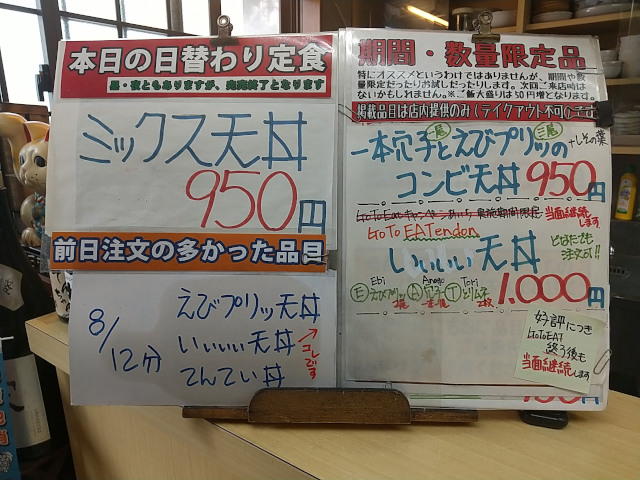 本日の日替わり定食
昼・夜ともありますが、完売終了となります
ミックス天丼
950円
前日注文の多かった品目
8/12分
えびプリッ天丼
いいいい天丼
てんてい丼
コレです
期間・数量限定品
特にオススメというわけではありませんが、期間や数
量限定だったりお試しだったりします。次回ご来店時は
ないかもしれません。※ご飯大盛りは50円増となります。
掲載品目は店内提供のみ（テイクアウト不可）です
一本穴子とえびプリッの
二尾
三尾
+しその葉
コンビ天丼 950円
GoToEatキャンペーンあいち 実施期間限定 当面継続します
GoTo EATendon
いいいい天丼
どなたでも
注文可!!
Ebi Anago Tori
E えびプリッ 2尾 A 穴子 一本 T とり天 2枚
1.000円
好評につき
GoToEAT
終了後も
当面継続します